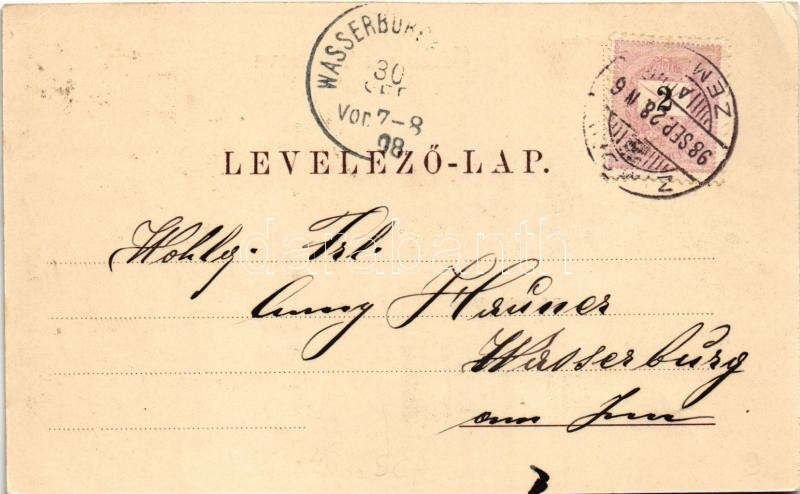 WASSERBURG
30
SEP
Vor. 7-8
98
2
98 SEP 28 N 6
ZEM
LEVELEZŐ-LAP.
darabanth
Wohlg. Frl.
Anny Hauner
Wasserburg
am Inn